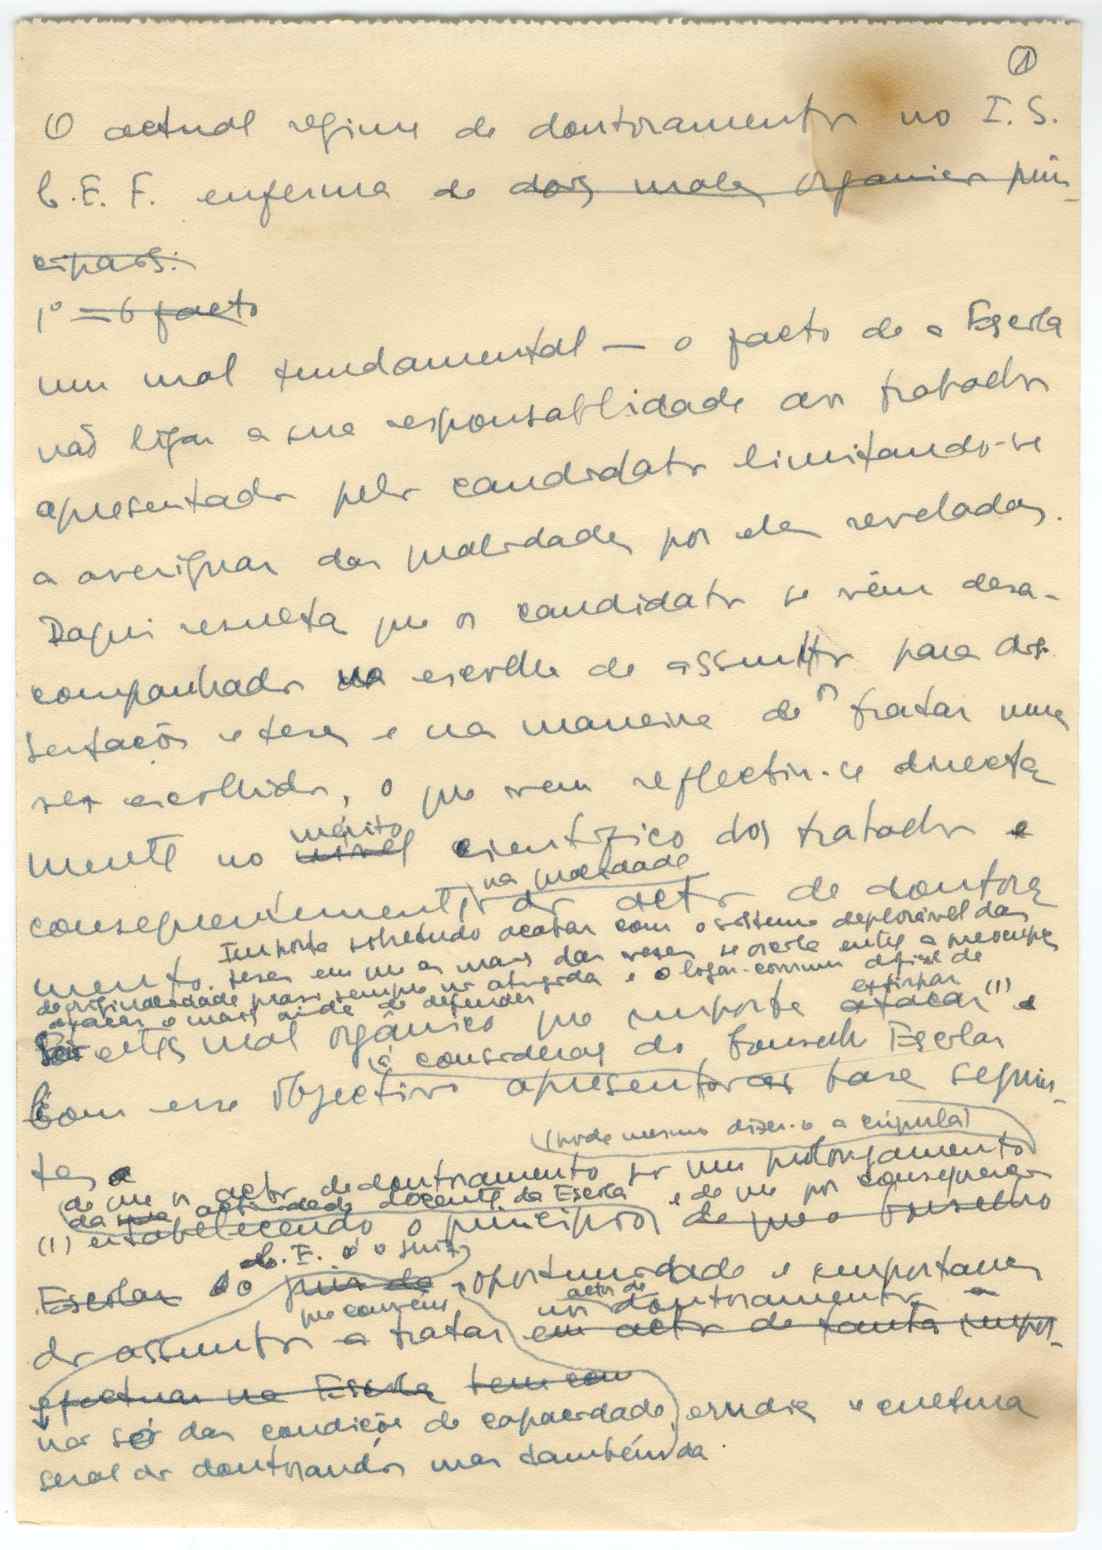 1
O actual regime de doutoramentos no I. S.
C. E. F. enferma de dois males orgânicos prin-
cipais:
1º = O facto
um mal fundamental — o facto de a Escola
não ligar a sua responsablidade aos trabalhos
apresentados pelos candidatos limitando-se
a averiguar das qualidades por eles reveladas.
Daqui resulta que os candidatos se vêm desa-
companhados na escolha de assuntos para dis-
sertações e teses e na maneira de os tratar uma
vez escolhidos, o que vem reflectir-se directa
mente no nivel mérito cientifico dos trabalhos e
consequentemente na qualidade dos actos de doutora
mento. Importa sobretudo acabar com o sistema deplorável das
teses em que as mais das vezes se oscila entre a preocupação
de originalidade quasi sempre não atingida e o logar-comum difícil de
atacar e mais ainda de defender
É este mal orgânico que importa atacar extirpar (1) e
Com esse objectivo apresentoras à consideração do Conselho Escolar bases seguin-
tes
(pode mesmo dizer-se a cúpula)
de que os actos de doutoramento são um prolongamento
da sua actividade docente da Escola e de que por consequência
(1) estabelecendo o princípio de que o Conselho
Escolar do C. E. é o juiz da oportunidade e importancia
dos assuntos que convém a tratar em actos de tanta impor
nos actos de doutoramento a
efectuar na Escola tem com
não só das condições de capacidade, erudição e cultura
geral dos doutorandos mas também da